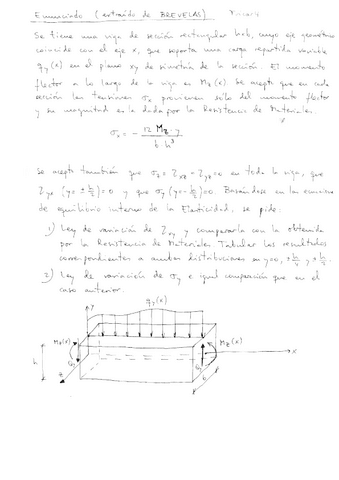 Enunciado (extraído de BREVELAS)
Se tiene una viga de sección rectangular bxh, cuyo eje geométrico
coincide con el eje x, que soporta una carga repartida variable
qy(x) en el plano xy de simetría de la sección. El momento
flector a lo largo de la viga es Mz(x). Se acepta que en cada
sección las tensiones σx provienen sólo del momento flector
y su magnitud es la dada por la Resistencia de Materiales.
σx = - 12 Mz · y / b · h³
Se acepta también que σz = τxz = τyz = 0 en toda la viga, que
τyx (y = ± h/2) = 0 y que σy (y = - h/2) = 0. Basándose en las ecuaciones
de equilibrio interno de la Elasticidad, se pide:
1) Ley de variación de τxy y compararla con la obtenida
por la Resistencia de Materiales. Tabular los resultados
correspondientes a ambas distribuciones en y=0, ± h/4 y ± h/2
2) Ley de variación de σy e igual comparación que en el
caso anterior.
qy(x)
y
Mz(x)
Mz(x)
x
h
z
b